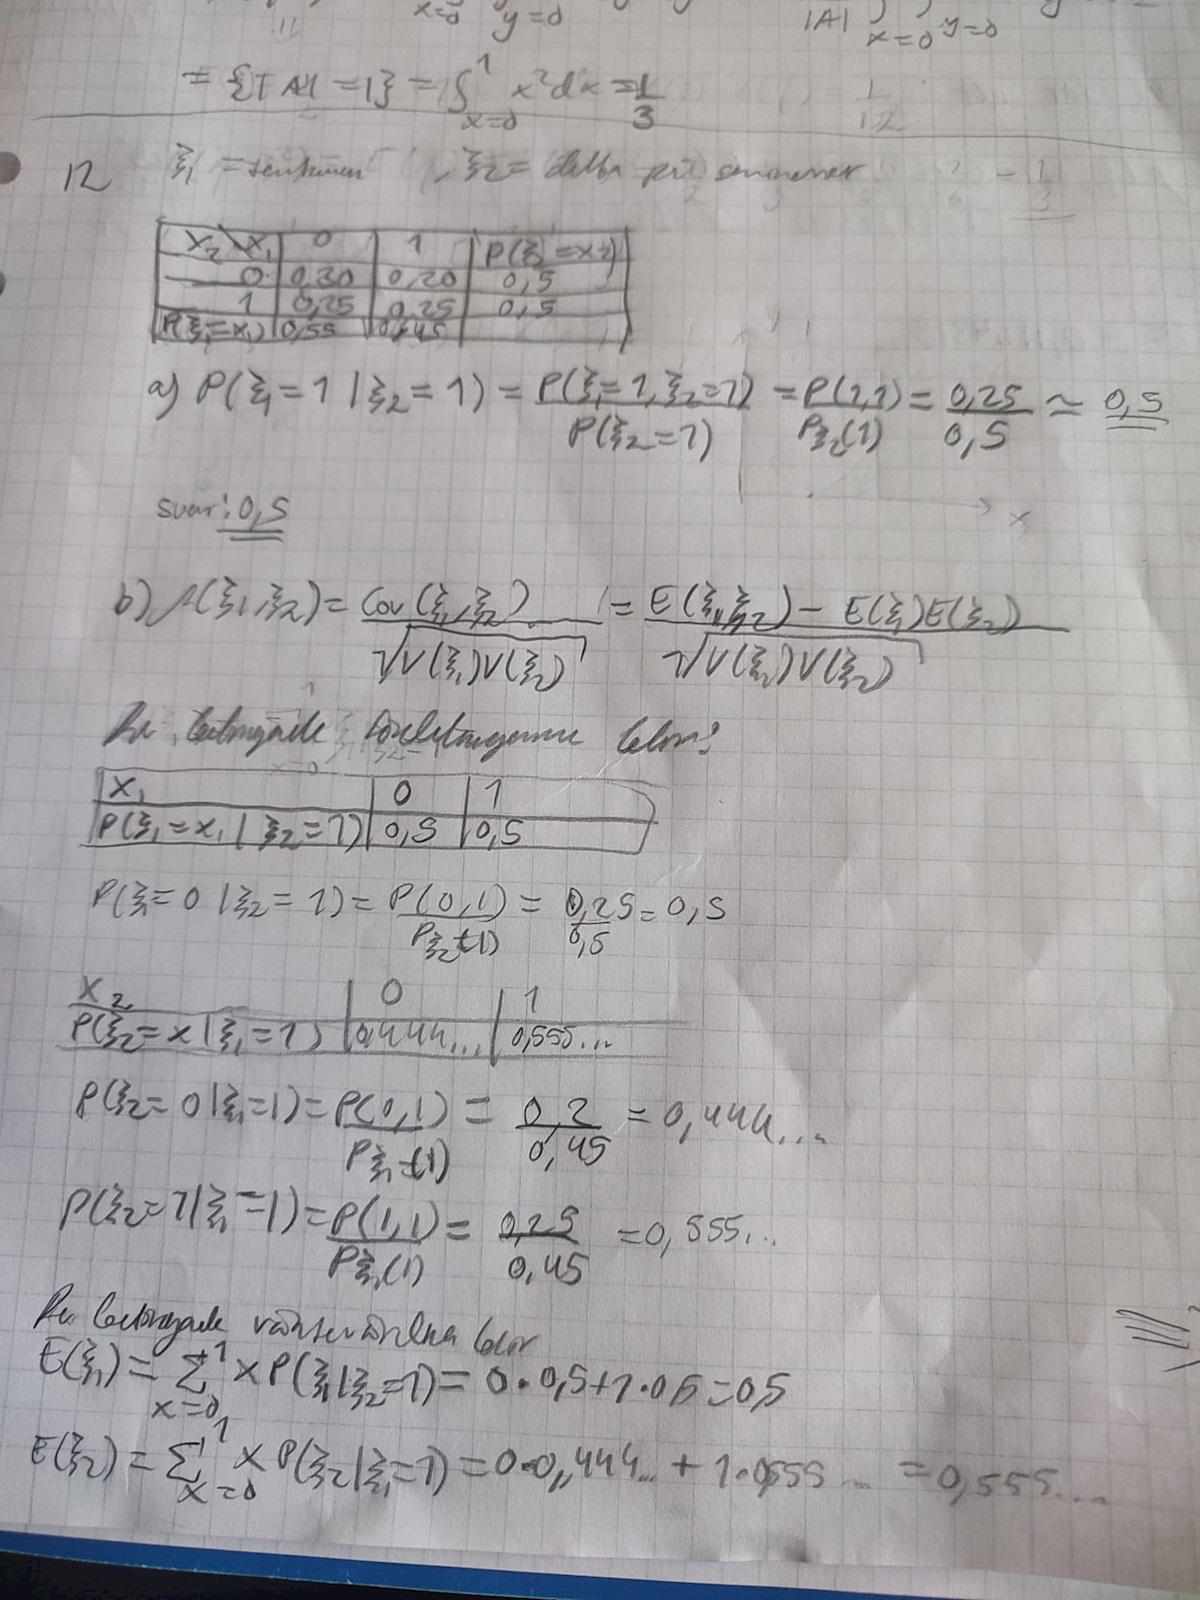 x=0 y=0
|A| x=0 y=0
= {|A| = 1} = ∫ x=0 1 x²dx = 1/3
12 ξ1 = , ξ2 = delta på seminarier
X2 \ X1 0 1 P(ξ2 = x2)
0 0,30 0,20 0,5
1 0,25 0,25 0,5
P(ξ1=x1) 0,55 0,45
a) P(ξ1 = 1 | ξ2 = 1) = P(ξ1 = 1, ξ2 = 1) / P(ξ2 = 1) = P(1,1) / Pξ2(1) = 0,25 / 0,5 ≃ 0,5
x
svar: 0,5
b) (ξ1, ξ2) = Cov(ξ1, ξ2) / √V(ξ1)V(ξ2) = E(ξ1, ξ2) - E(ξ1)E(ξ2) / √V(ξ1)V(ξ2)
betingade
X1 0 1
P(ξ1 = x1 | ξ2 = 1) 0,5 0,5
P(ξ1 = 0 | ξ2 = 1) = P(0,1) / Pξ2(1) = 0,25 / 0,5 = 0,5
X2 0 1
P(ξ2 = x | ξ1 = 1) 0,444... 0,555...
P(ξ2 = 0 | ξ1 = 1) = P(0,1) / Pξ1(1) = 0,2 / 0,45 = 0,444...
P(ξ2 = 1 | ξ1 = 1) = P(1,1) / Pξ1(1) = 0,25 / 0,45 = 0,555...
betingade
E(ξ1) = Σ x=0 1 x P(ξ1 | ξ2 = 1) = 0 · 0,5 + 1 · 0,5 = 0,5
E(ξ2) = Σ x=0 1 x P(ξ2 | ξ1 = 1) = 0 · 0,444... + 1 · 0,555... = 0,555...